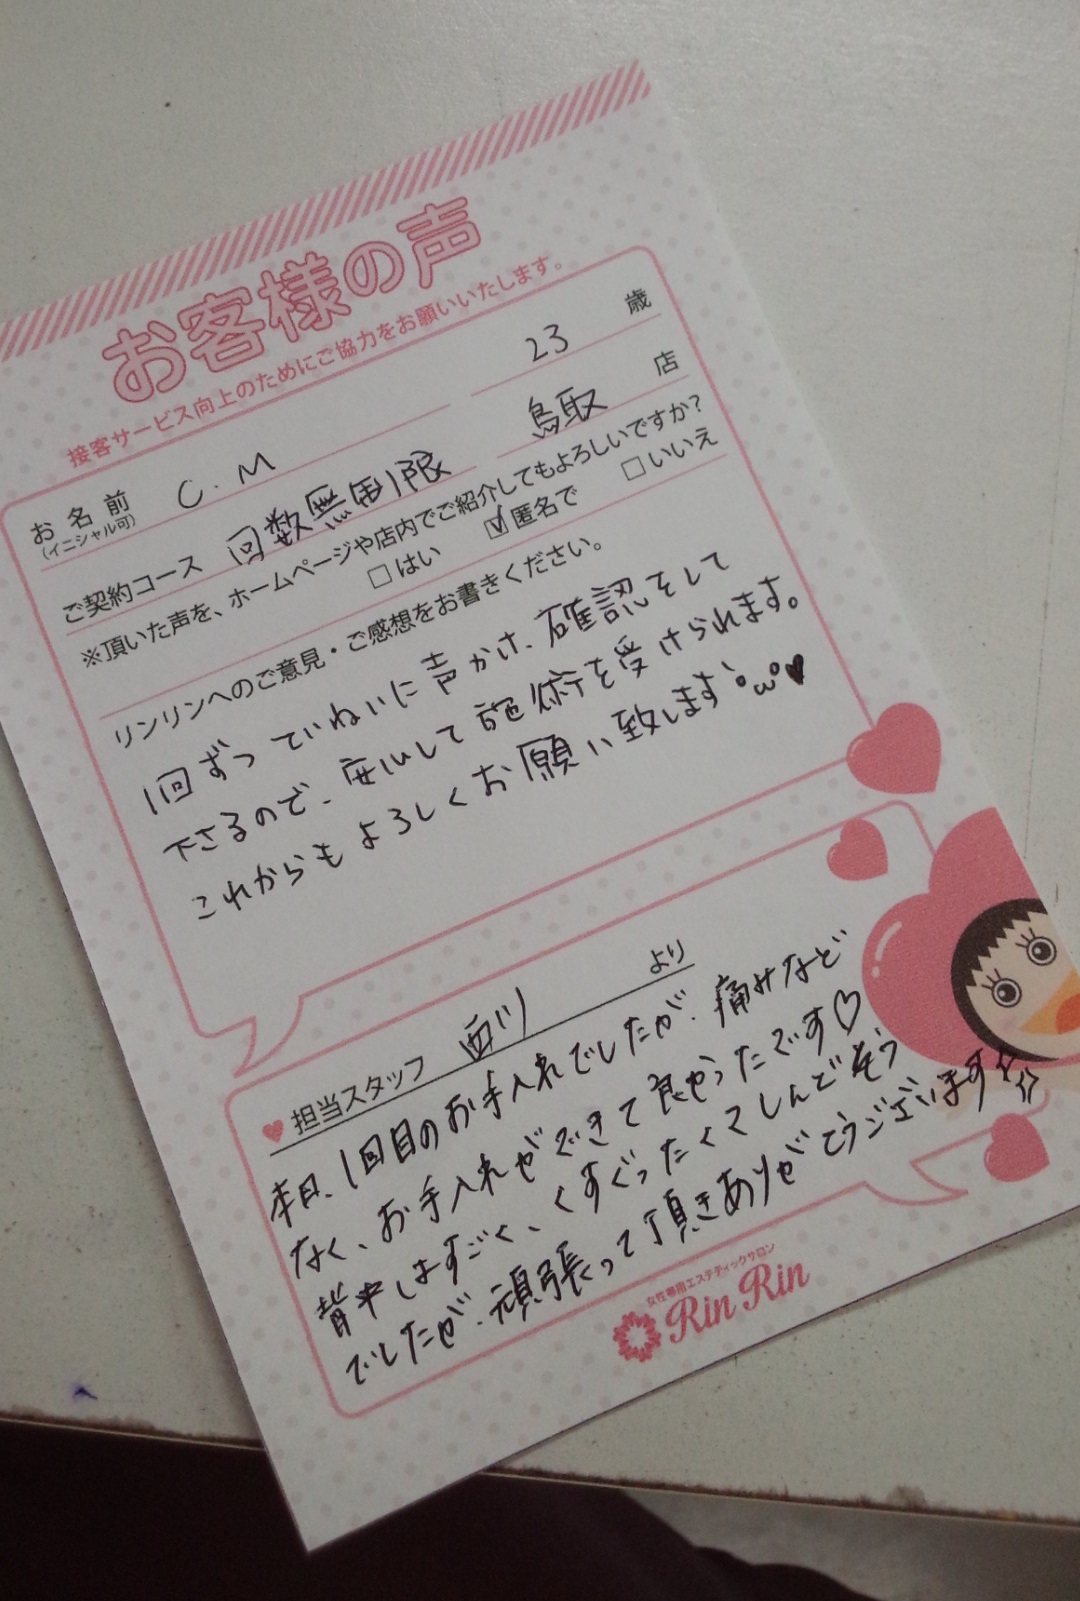 お客様の声
接客サービス向上のためにご協力をお願いいたします。
お名前 C.M 23 歳
(イニシャル可)
ご契約コース 回数無制限 鳥取 店
※頂いた声を、ホームページや店内でご紹介してもよろしいですか?
□はい ☑匿名で □いいえ
リンリンへのご意見・ご感想をお書きください。
1回ずつていねいに声かけ、確認をして
下さるので、安心して施術を受けられます。
これからもよろしくお願い致します°ω°♥
♥担当スタッフ 西川 より
本日、1回目のお手入れでしたが、痛みなど
なく、お手入れができて良かったです♡
背中はすごく、くすぐったくてしんどそう
でしたが、頑張って頂きありがとうございます
女性専用エステティックサロン
Rin Rin